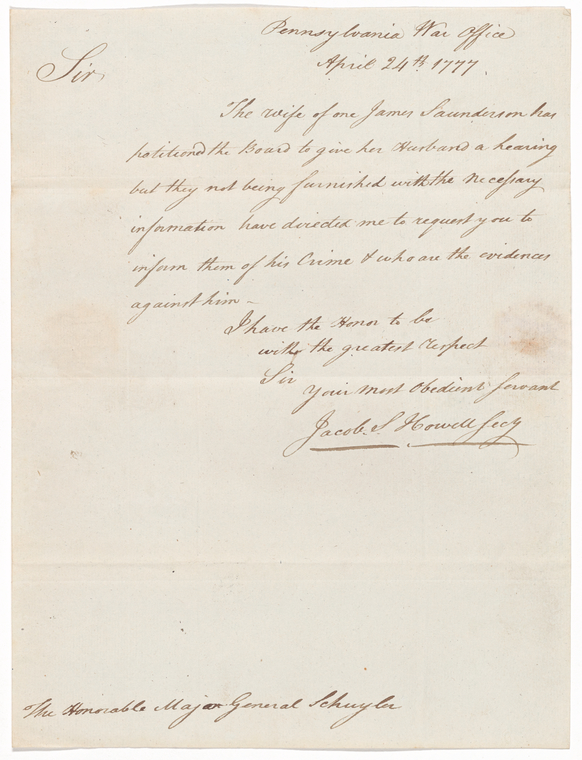 Pennsylvania War Office
April 24th 1777.
Sir
The wife of one James Saunderson has
petitiond the Board to give her Husband a hearing
but they not being furnished with the necessary
information have directed me to request you to
inform them of his Crime & who are the evidences
against him –
I have the Honor to be
with the greatest respect
Sir
Your most Obedient Servant
Jacob S Howell Secy
The Honorable Major General Schuyler